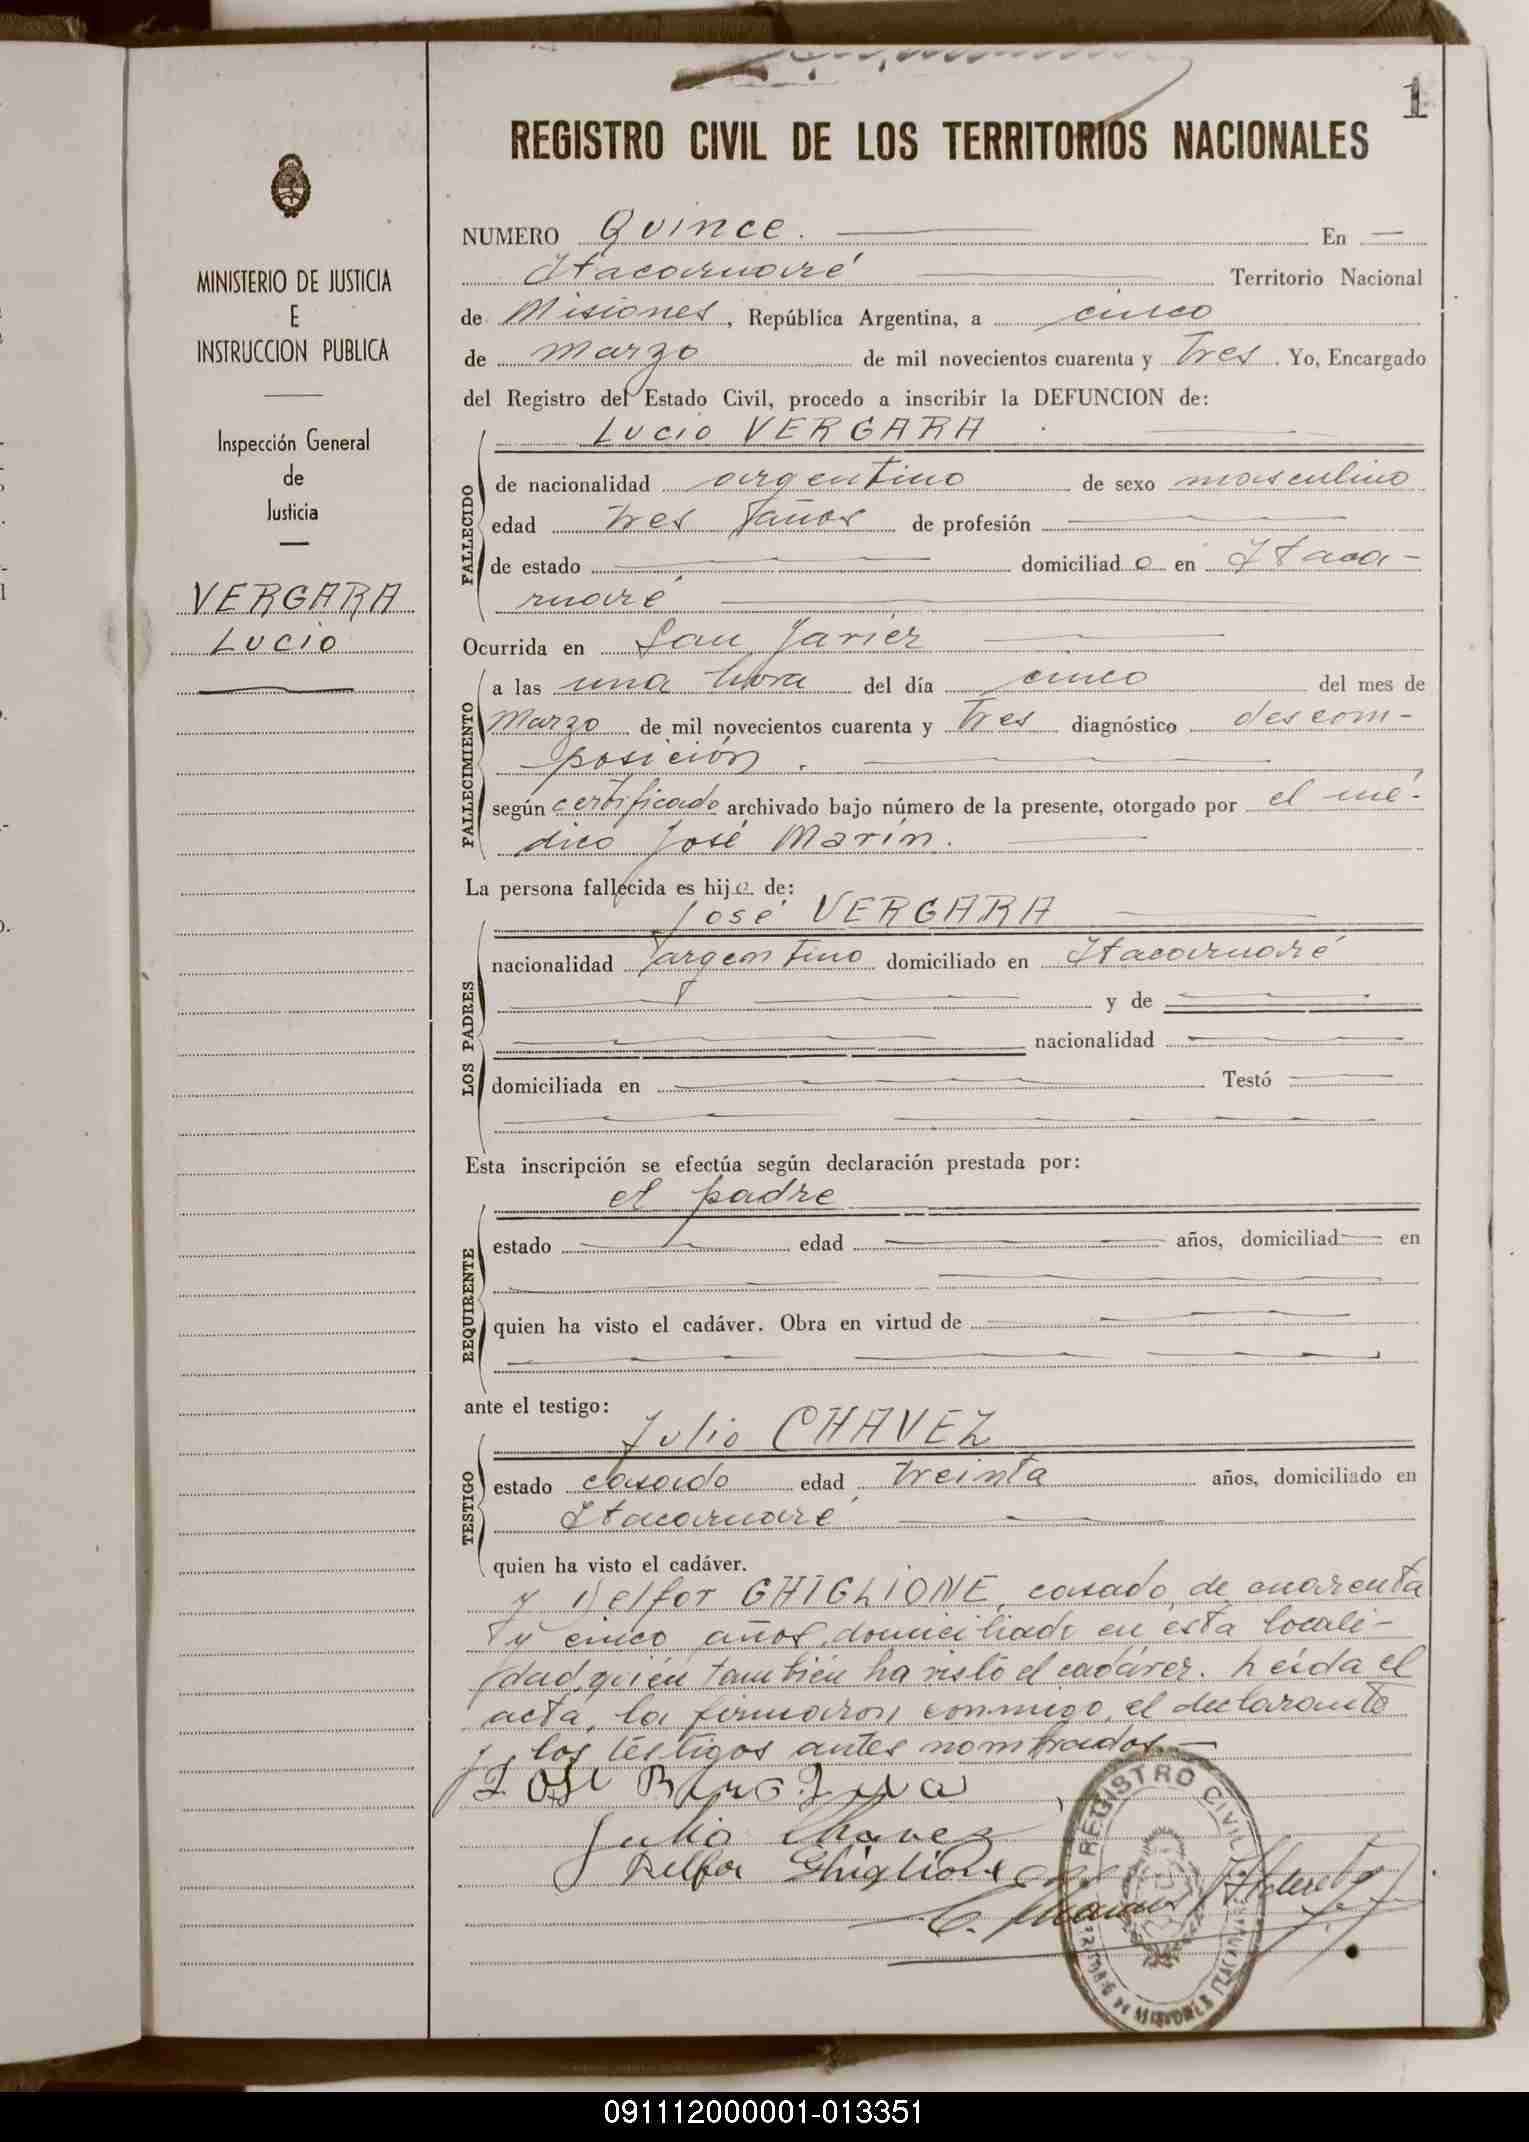 1
REGISTRO CIVIL DE LOS TERRITORIOS NACIONALES
MINISTERIO DE JUSTICIA
E
INSTRUCCION PUBLICA
Inspección General
de
Justicia
VERGARA
Lucio
NUMERO Quince. En
Itacaruaré Territorio Nacional
de Misiones, República Argentina, a cinco
de Marzo de mil novecientos cuarenta y Tres. Yo, Encargado
del Registro del Estado Civil, procedo a inscribir la DEFUNCION de:
Lucio VERGARA
FALLECIDO
de nacionalidad argentino de sexo masculino
edad tres años de profesión
de estado domiciliado en Itaca-
ruaré
Ocurrida en San Javier
FALLECIMIENTO
a las una hora del día cinco del mes de
Marzo de mil novecientos cuarenta y Tres diagnóstico descom-
posición.
según certificado archivado bajo número de la presente, otorgado por el mé-
dico José Marín.
La persona fallecida es hijo de:
José VERGARA
LOS PADRES
nacionalidad argentino domiciliado en Itacaruaré
y de
nacionalidad
domiciliada en Testó
Esta inscripción se efectúa según declaración prestada por:
el padre
REQUIRENTE
estado edad años, domiciliad en
quien ha visto el cadáver. Obra en virtud de
ante el testigo:
Julio CHAVEZ
TESTIGO
estado casado edad treinta años, domiciliado en
Itacaruaré
quien ha visto el cadáver.
y Delfor GHIGLIONE, casado, de cuarenta
y cinco años, domiciliado en esta locali-
dad, quien también ha visto el cadáver. Leída el
acta, la firmaron conmigo, el declarante
y los testigos antes nombrados.
José
Julio Chavez
Delfor Ghiglione
REGISTRO CIVIL
TERRITORIO DE MISIONES ITACARUARE
091112000001-013351